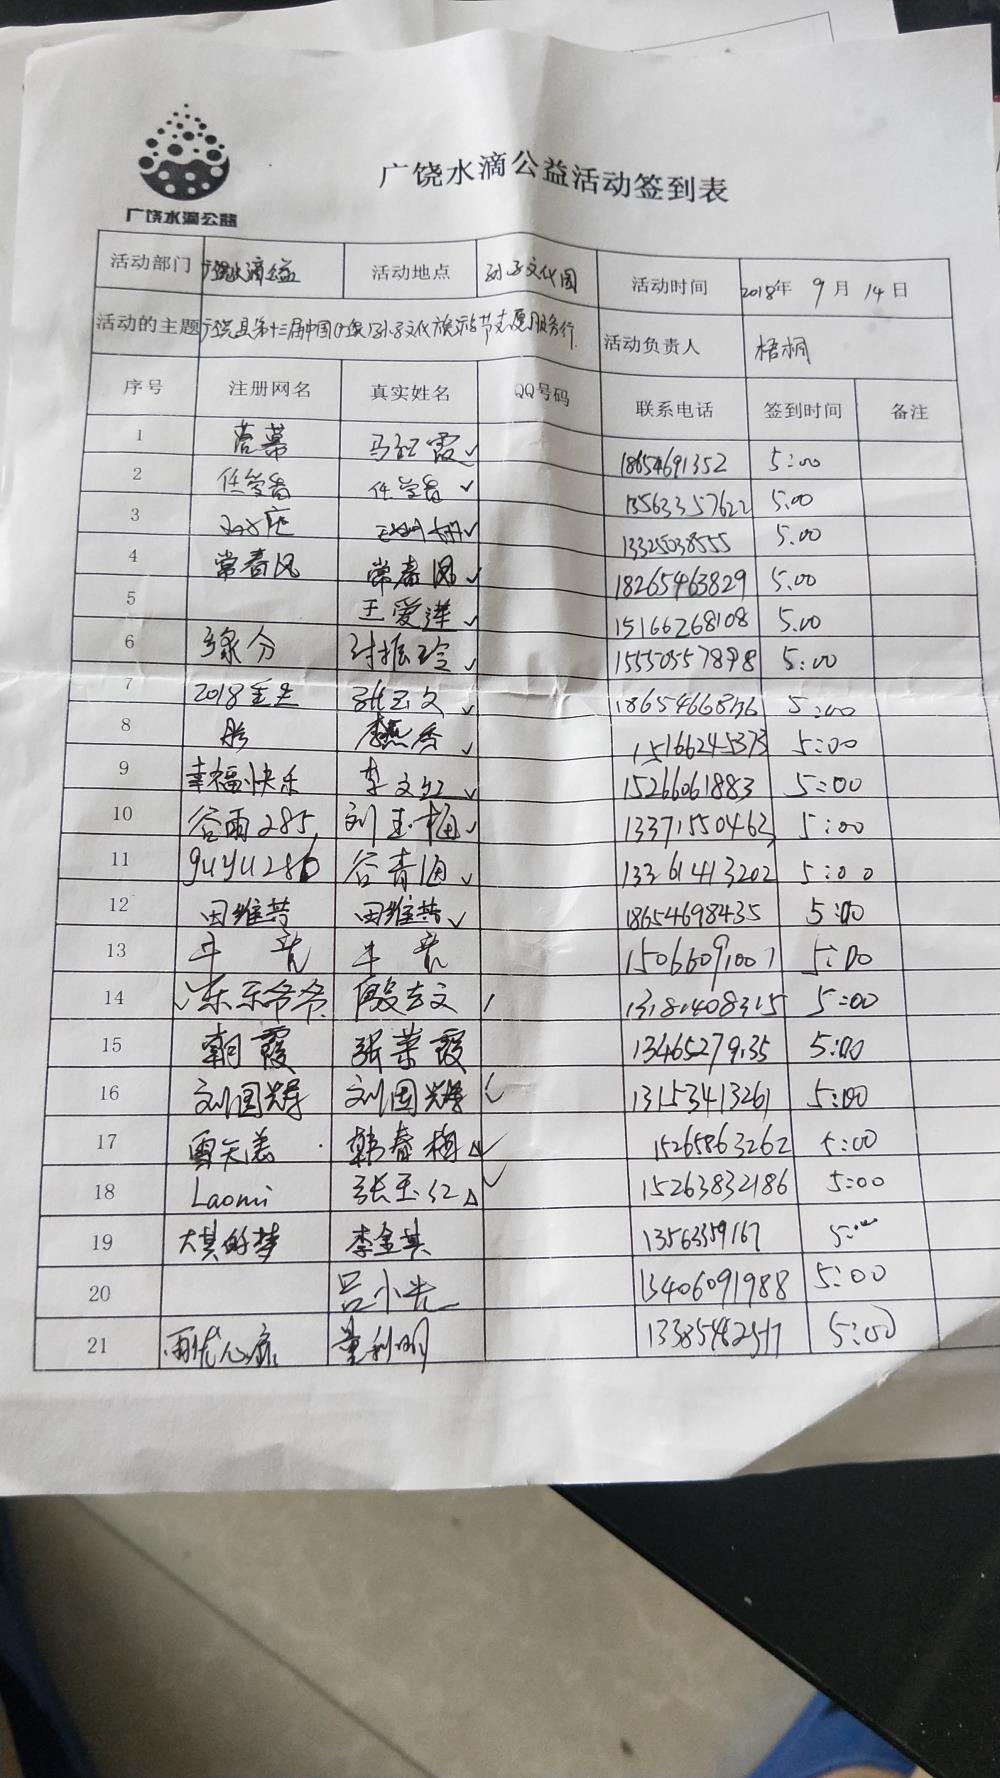 广饶水滴公益
广饶水滴公益活动签到表
活动部门 广饶水滴公益 活动地点 孙子文化园 活动时间 2018年 9月 14日
活动的主题 广饶县第十三届中国 孙子文化旅游节志愿服务行 活动负责人 梧桐
序号 注册网名 真实姓名 QQ号码 联系电话 签到时间 备注
1 马红霞 18654691352 5:00
2 任学香 任学香 13563357622 5:00
3 13325038555 5:00
4 常春风 常春风 18265463829 5:00
5 王爱莲 15166268108 5:00
6 缘分 15550557898 5:00
7 2018 张玉文 5:00
8 彤 李燕香 15166245373 5:00
9 幸福快乐 李文红 15266061883 5:00
10 谷雨285 刘玉梅 13371550463 5:00
11 guyu286 谷青海 13361413202 5:00
12 田维营 田维营 18654698435 5:00
13 15066091007 5:00
14 东东爷爷 殷吉文 13181408315 5:00
15 朝霞 张荣霞 13465279135 5:00
16 刘国辉 刘国辉 13153413261 5:00
17 韩春梅 15265863262 5:00
18 Laomi 张玉红 15263832186 5:00
19 大其的梦 李金其 13563359167 5:00
20 吕小光 13406091988 5:00
21 董利明 5:00